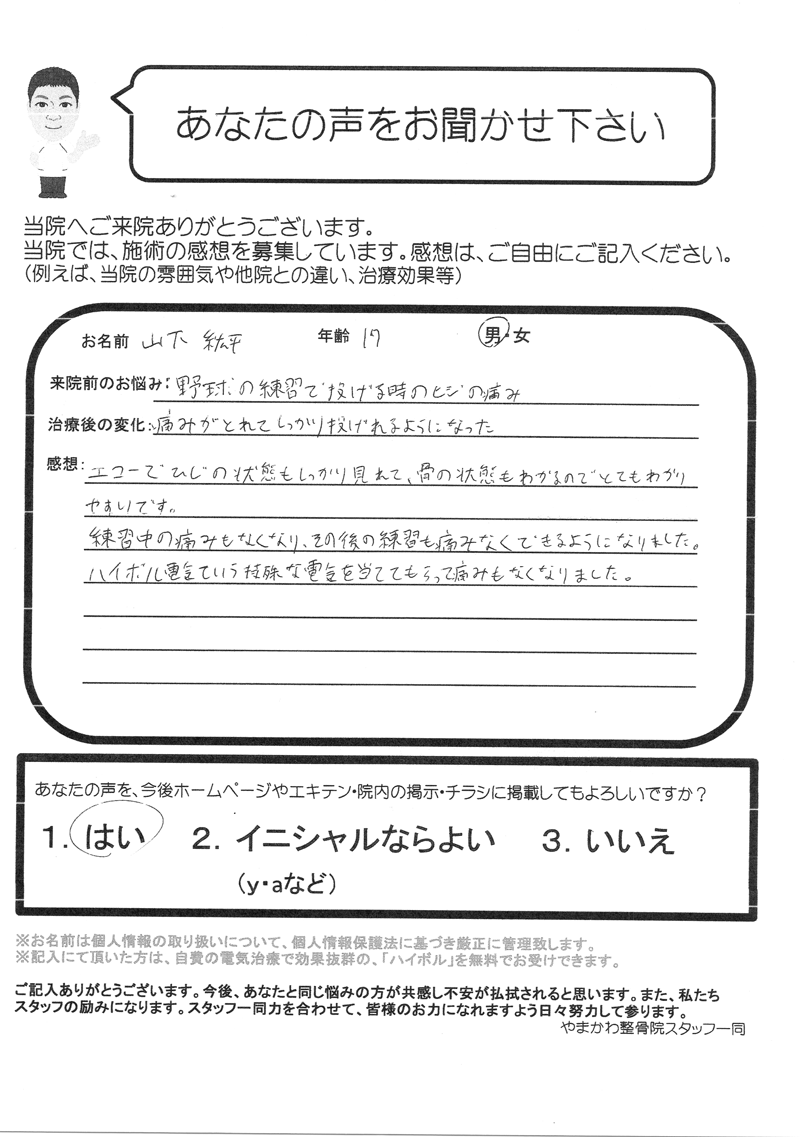 あなたの声をお聞かせ下さい
当院へご来院ありがとうございます。
当院では、施術の感想を募集しています。感想は、ご自由にご記入ください。
(例えば、当院の雰囲気や他院との違い、治療効果等)
お名前 山下 紘平 年齢 17 男・女
来院前のお悩み: 野球の練習で投げる時のヒジの痛み
治療後の変化: 痛みがとれてしっかり投げれるようになった
感想: エコーでひじの状態もしっかり見れて、骨の状態もわかるのでとてもわかり
やすいです。
練習中の痛みもなくなり、その後の練習も痛みなくできるようになりました。
ハイボル電気ていう特殊な電気を当ててもらって痛みもなくなりました。
あなたの声を、今後ホームページやエキテン・院内の掲示・チラシに掲載してもよろしいですか?
1. はい 2. イニシャルならよい 3. いいえ
(y・aなど)
※お名前は個人情報の取り扱いについて、個人情報保護法に基づき厳正に管理致します。
※記入にて頂いた方は、自費の電気治療で効果抜群の、「ハイボル」を無料でお受けできます。
ご記入ありがとうございます。今後、あなたと同じ悩みの方が共感し不安が払拭されると思います。また、私たち
スタッフの励みになります。スタッフ一同力を合わせて、皆様のお力になれますよう日々努力して参ります。
やまかわ整骨院スタッフ一同